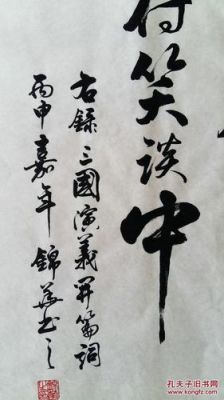 付笑談中
右錄三國演義開篇詞
丙申嘉年錦華书之
孔夫子旧书网
www.kongfz.com